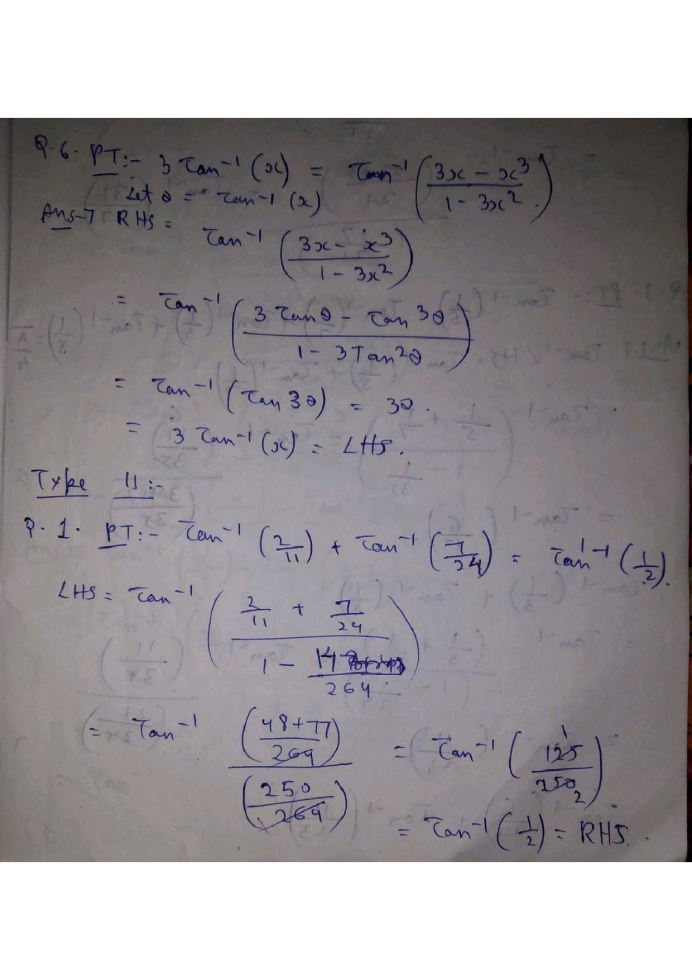 Q.6. PT:- 3 Tan⁻¹ (x) = Tan⁻¹ ((3x - x³)/(1 - 3x²))
Let θ = Tan⁻¹ (x)
Ans→ RHS = Tan⁻¹ ((3x - x³)/(1 - 3x²))
= Tan⁻¹ ((3 Tanθ - Tan³θ)/(1 - 3 Tan²θ))
= Tan⁻¹ (Tan 3θ) = 3θ.
= 3 Tan⁻¹ (x) = LHS.
Type II:-
Q.1. PT:- Tan⁻¹ (2/11) + Tan⁻¹ (7/24) = Tan⁻¹ (1/2).
LHS = Tan⁻¹ ((2/11 + 7/24)/(1 - 14/264))
= Tan⁻¹ ((48+77)/264)/(250/264) = Tan⁻¹ (125/250) 1 2
= Tan⁻¹ (1/2) = RHS.